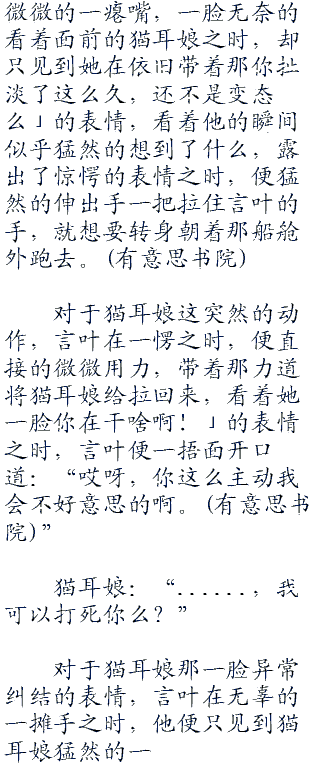 微微的一瘪嘴，一脸无奈的
看着面前的猫耳娘之时，却
只见到她在依旧带着那你扯
淡了这么久，还不是变态
么」的表情，看着他的瞬间
似乎猛然的想到了什么，露
出了惊愕的表情之时，便猛
然的伸出手一把拉住言叶的
手，就想要转身朝着那船舱
外跑去。(有意思书院)
对于猫耳娘这突然的动
作，言叶在一愣之时，便直
接的微微用力，带着那力道
将猫耳娘给拉回来，看着她
一脸你在干啥啊！」的表情
之时，言叶便一捂面开口
道：“哎呀，你这么主动我
会不好意思的啊。(有意思书
院)”
猫耳娘：“......，我
可以打死你么？”
对于猫耳娘那一脸异常
纠结的表情，言叶在无辜的
一摊手之时，他便只见到猫
耳娘猛然的一